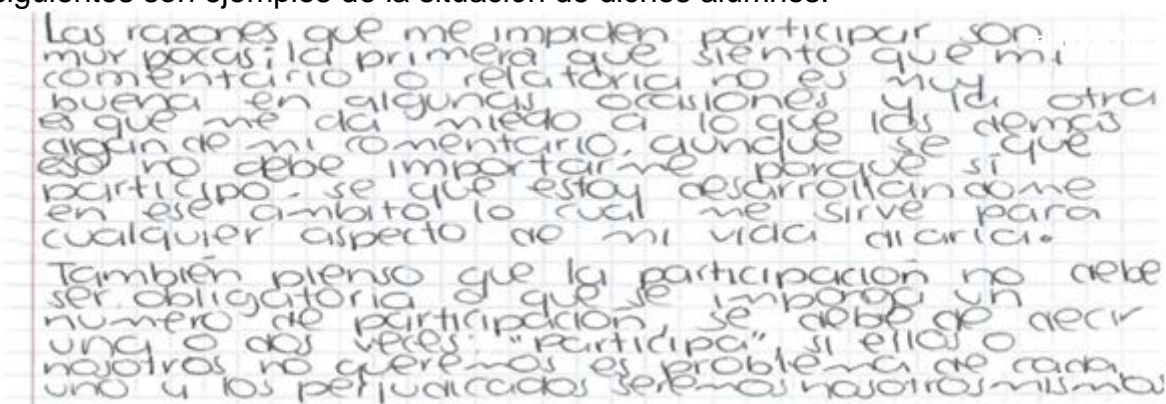 siguientes son ejemplos de la situación de dichos alumnos:
Las razones que me impiden participar son
muy pocas; la primera que siento que mi
comentario o relatoria no es muy
buena en algunas ocasiones y la otra
es que me da miedo a lo que los demás
digan de mi comentario, aunque se que
eso no debe importarme porque si
participo. se que estoy desarrollandome
en ese ambito lo cual me sirve para
cualquier aspecto de mi vida diaria.
También pienso que la participación no debe
ser obligatoria o que se imponga un
numero de participación, se debe de decir
una o dos veces: "participa" si ellos o
nosotros no queremos es problema de cada
uno y los perjudicados seremos nosotros mismos